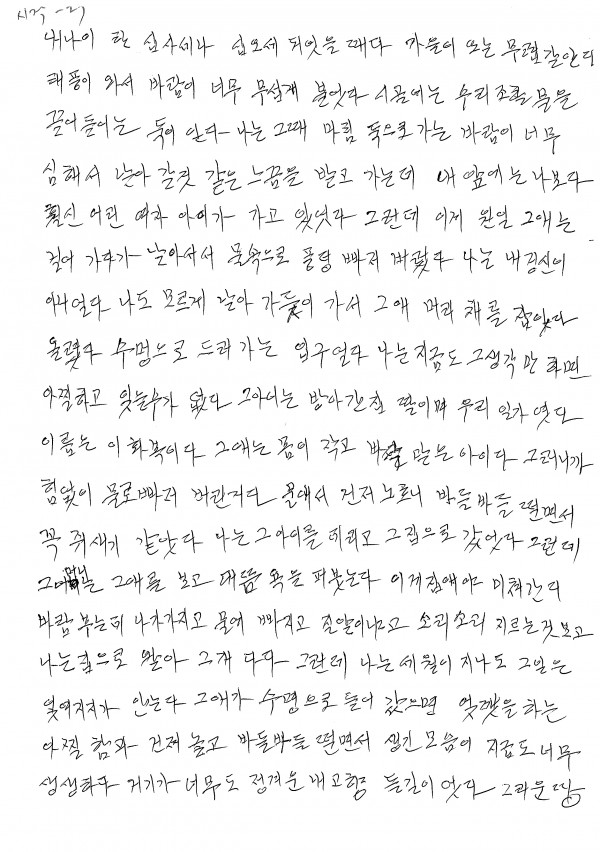 시각 - 21
내나이 한 십사세나 십오세 되엿을 때다 가을이 오는 무렵 갈안다
태풍이 와서 바람이 너무 무섭게 불엇다 시골에는 우리 조를 물을
끌어들이는 둑이 잇다 나는 그때 마침 둑으로 가는 바람이 너무
심해서 날아 갈것 같은 느낌을 받고 가는데 내 앞에는 나보다
훨신 어린 여자 아이가 가고 있엇다 그런데 이게 왼일 그애는
걸어 가다가 날아서서 물속으로 풍덩 빠저 버렷다 나는 내정신이
아니엇다 나도 모르게 날아 가듯이 가서 그애 머리 채를 잡앗다
올렷다 수멍으로 드러 가는 입구엿다 나는 지금도 그생각만 하면
아찔하고 잊을수가 없다 그아이는 방아간집 딸이며 우리 일가엿다
이름은 이화복이다 그애는 몸이 작고 바싹 말른 아이다 그러니까
힘없이 물로 빠저 버린거다 물에서 건저 노흐니 바들바들 떨면서
꼭 쥐새기 같앗다 나는 그아이를 데리고 그집으로 갔엇다 그런데
그어머니는 그애를 보고 대뜸 욕을 퍼붓는다 이게집애야 미쳐간디
바람 부는데 나가가지고 물에 빠지고 질알이냐고 소리소리 지르는것 보고
나는 집으로 왔아 그게 다다 그런데 나는 세월이 지나도 그일은
잊여지지가 안는다 그애가 수멍으로 들어 갔으면 엇젯을 하는
아찔 함과 건저 놀고 바들바들 떨면서 생긴 모습이 지금도 너무
생생하다 거기가 너무도 정겨운 내 고향 들길이 엇다 그리운 땅